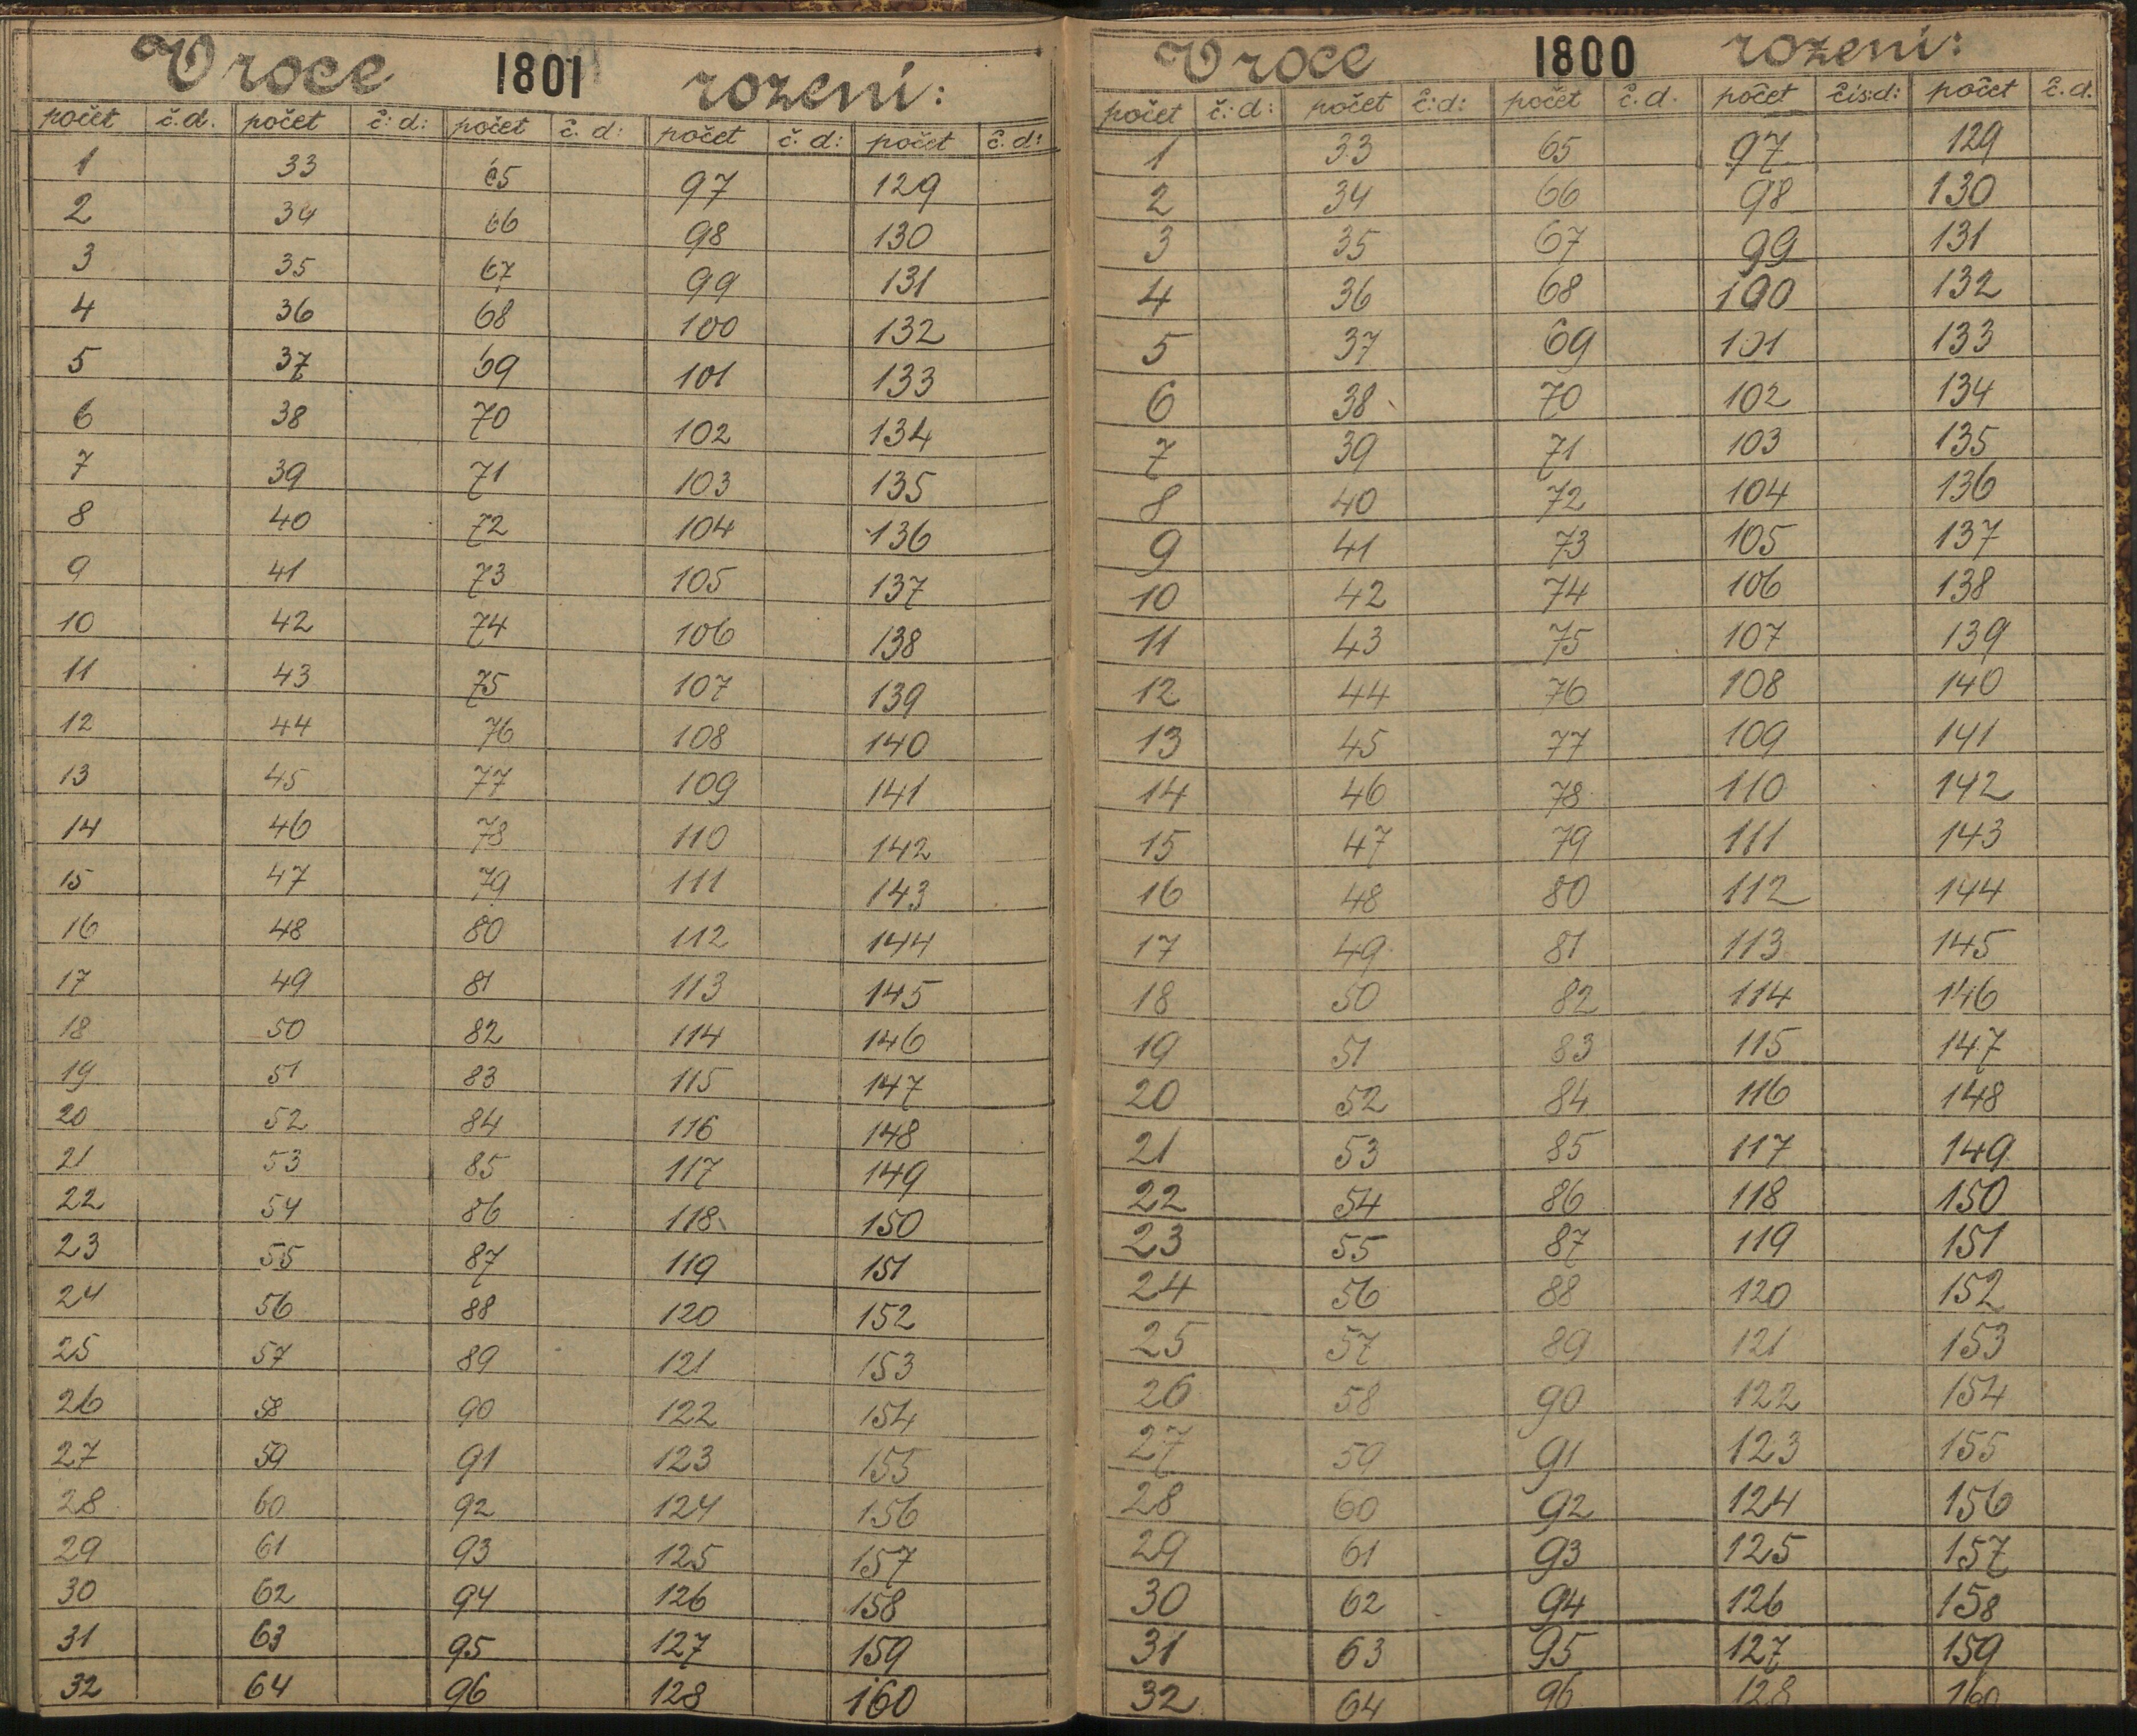 V roce 1801 rození:
počet č.d. počet č:d: počet č.d: počet č:d: počet č.d:
1 33 65 97 129
2 34 66 98 130
3 35 67 99 131
4 36 68 100 132
5 37 69 101 133
6 38 70 102 134
7 39 71 103 135
8 40 72 104 136
9 41 73 105 137
10 42 74 106 138
11 43 75 107 139
12 44 76 108 140
13 45 77 109 141
14 46 78 110 142
15 47 79 111 143
16 48 80 112 144
17 49 81 113 145
18 50 82 114 146
19 51 83 115 147
20 52 84 116 148
21 53 85 117 149
22 54 86 118 150
23 55 87 119 151
24 56 88 120 152
25 57 89 121 153
26 58 90 122 154
27 59 91 123 155
28 60 92 124 156
29 61 93 125 157
30 62 94 126 158
31 63 95 127 159
32 64 96 128 160
V roce 1800 rození:
počet č:d: počet č:d: počet č.d. počet čís:d: počet č.d.
1 33 65 97 129
2 34 66 98 130
3 35 67 99 131
4 36 68 100 132
5 37 69 101 133
6 38 70 102 134
7 39 71 103 135
8 40 72 104 136
9 41 73 105 137
10 42 74 106 138
11 43 75 107 139
12 44 76 108 140
13 45 77 109 141
14 46 78 110 142
15 47 79 111 143
16 48 80 112 144
17 49 81 113 145
18 50 82 114 146
19 51 83 115 147
20 52 84 116 148
21 53 85 117 149
22 54 86 118 150
23 55 87 119 151
24 56 88 120 152
25 57 89 121 153
26 58 90 122 154
27 59 91 123 155
28 60 92 124 156
29 61 93 125 157
30 62 94 126 158
31 63 95 127 159
32 64 96 128 160